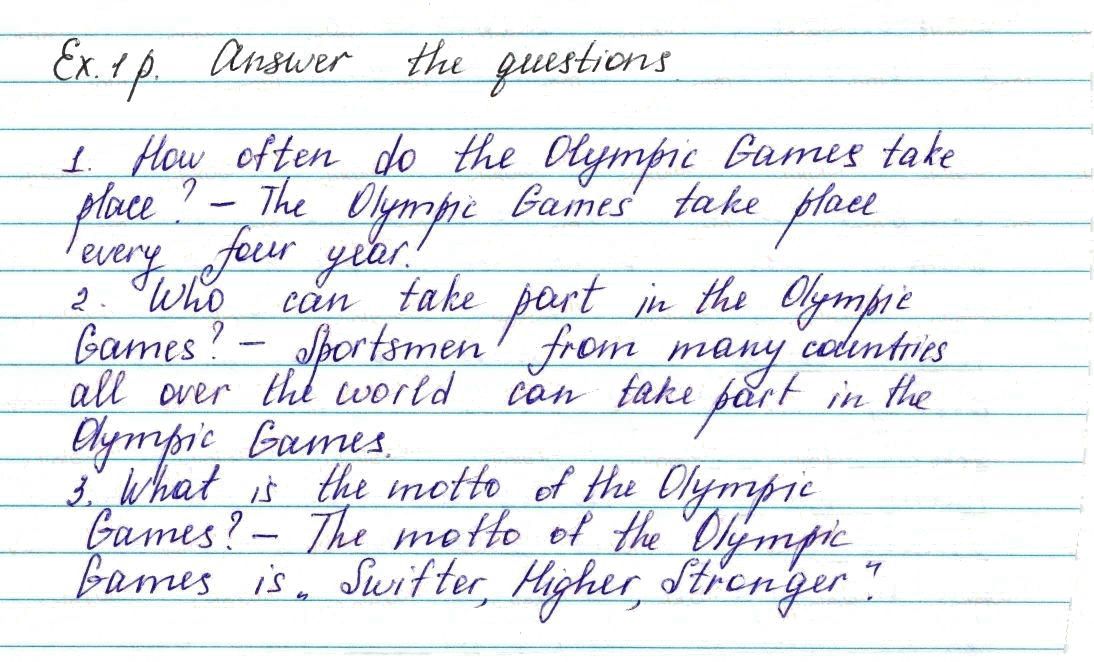 Ex. 1 p. Answer the questions
1. How often do the Olympic Games take
place? – The Olympic Games take place
every four year.
2. Who can take part in the Olympic
Games? – Sportsmen from many countries
all over the world can take part in the
Olympic Games.
3. What is the motto of the Olympic
Games? – The motto of the Olympic
Games is „ Swifter, Higher, Stronger“.